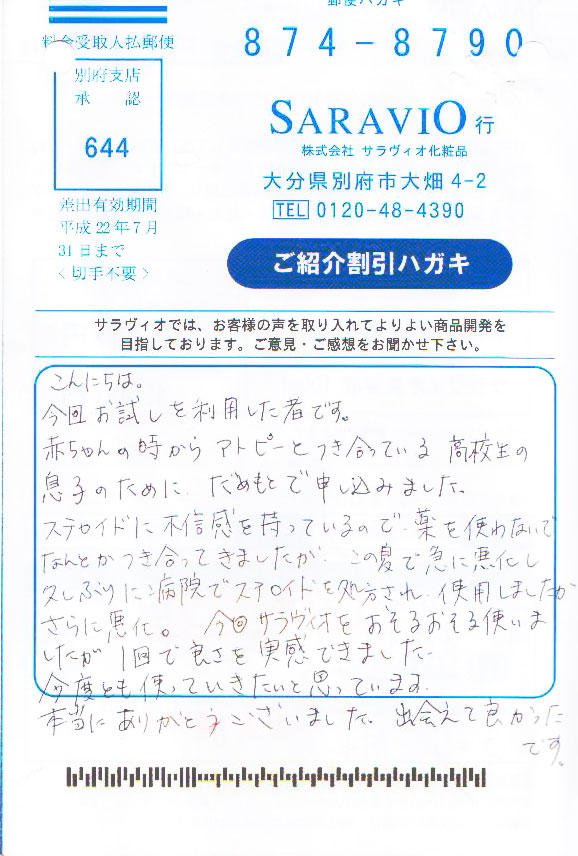 郵便ハガキ
料金受取人払郵便
874-8790
別府支店
承認
644
SARAVIO 行
株式会社 サラヴィオ化粧品
大分県別府市大畑 4-2
TEL 0120-48-4390
差出有効期間
平成22年7月
31日まで
<切手不要>
ご紹介割引ハガキ
サラヴィオでは、お客様の声を取り入れてよりよい商品開発を
目指しております。ご意見・ご感想をお聞かせ下さい。
こんにちは。
今回お試しを利用した者です。
赤ちゃんの時からアトピーとつき合っている 高校生の
息子のために、だめもとで申し込みました。
ステロイドに不信感を持っているので、薬を使わないで
なんとかつき合ってきましたが、この夏で急に悪化し
久しぶりに病院でステロイドを処方され、使用しましたが
さらに悪化。 今回サラヴィオをおそるおそる使いま
したが 1回で良さを実感できました。
今度とも使っていきたいと思っています。
本当にありがとうございました。出会えて良かった
です。